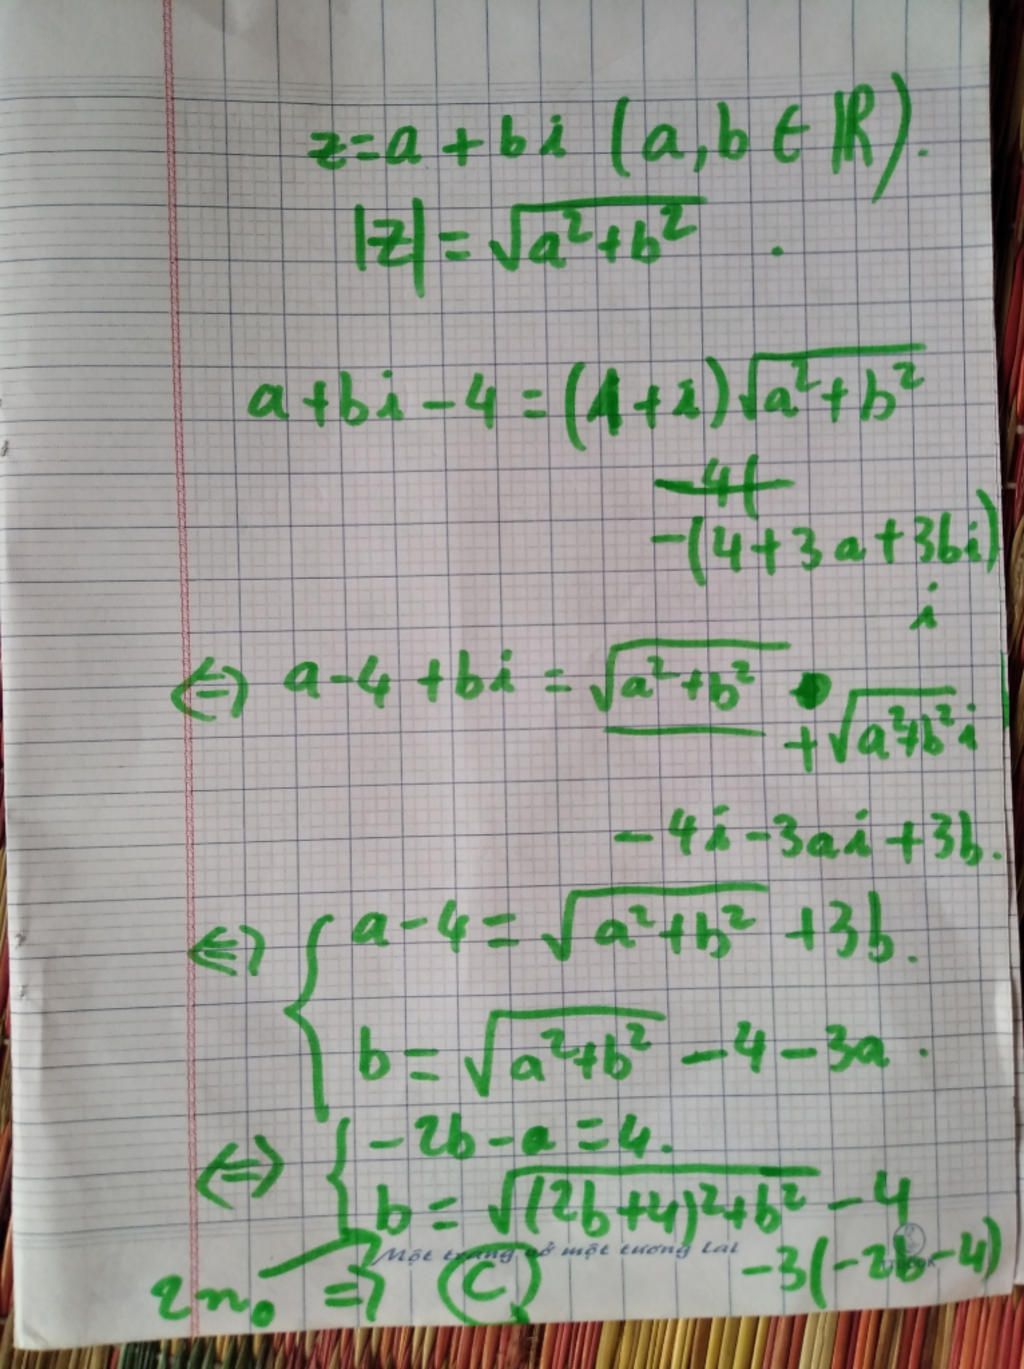 z=a+bi (a,b∈ℝ).
|z|=√(a²+b²) .
a+bi-4=(1+i)√(a²+b²)
-4(
-(4+3a+3bi)
i
⇔ a-4+bi=√(a²+b²)
+√(a²+b²)i
-4i-3ai+3b.
⇔ { a-4=√(a²+b²) +3b.
b=√(a²+b²) -4-3a .
⇔ { -2b-a=4.
b=√((2b+4)²+b²) -4
Một trang vở một tương lai
-3(-2b-4)
2no ⇒ (C)